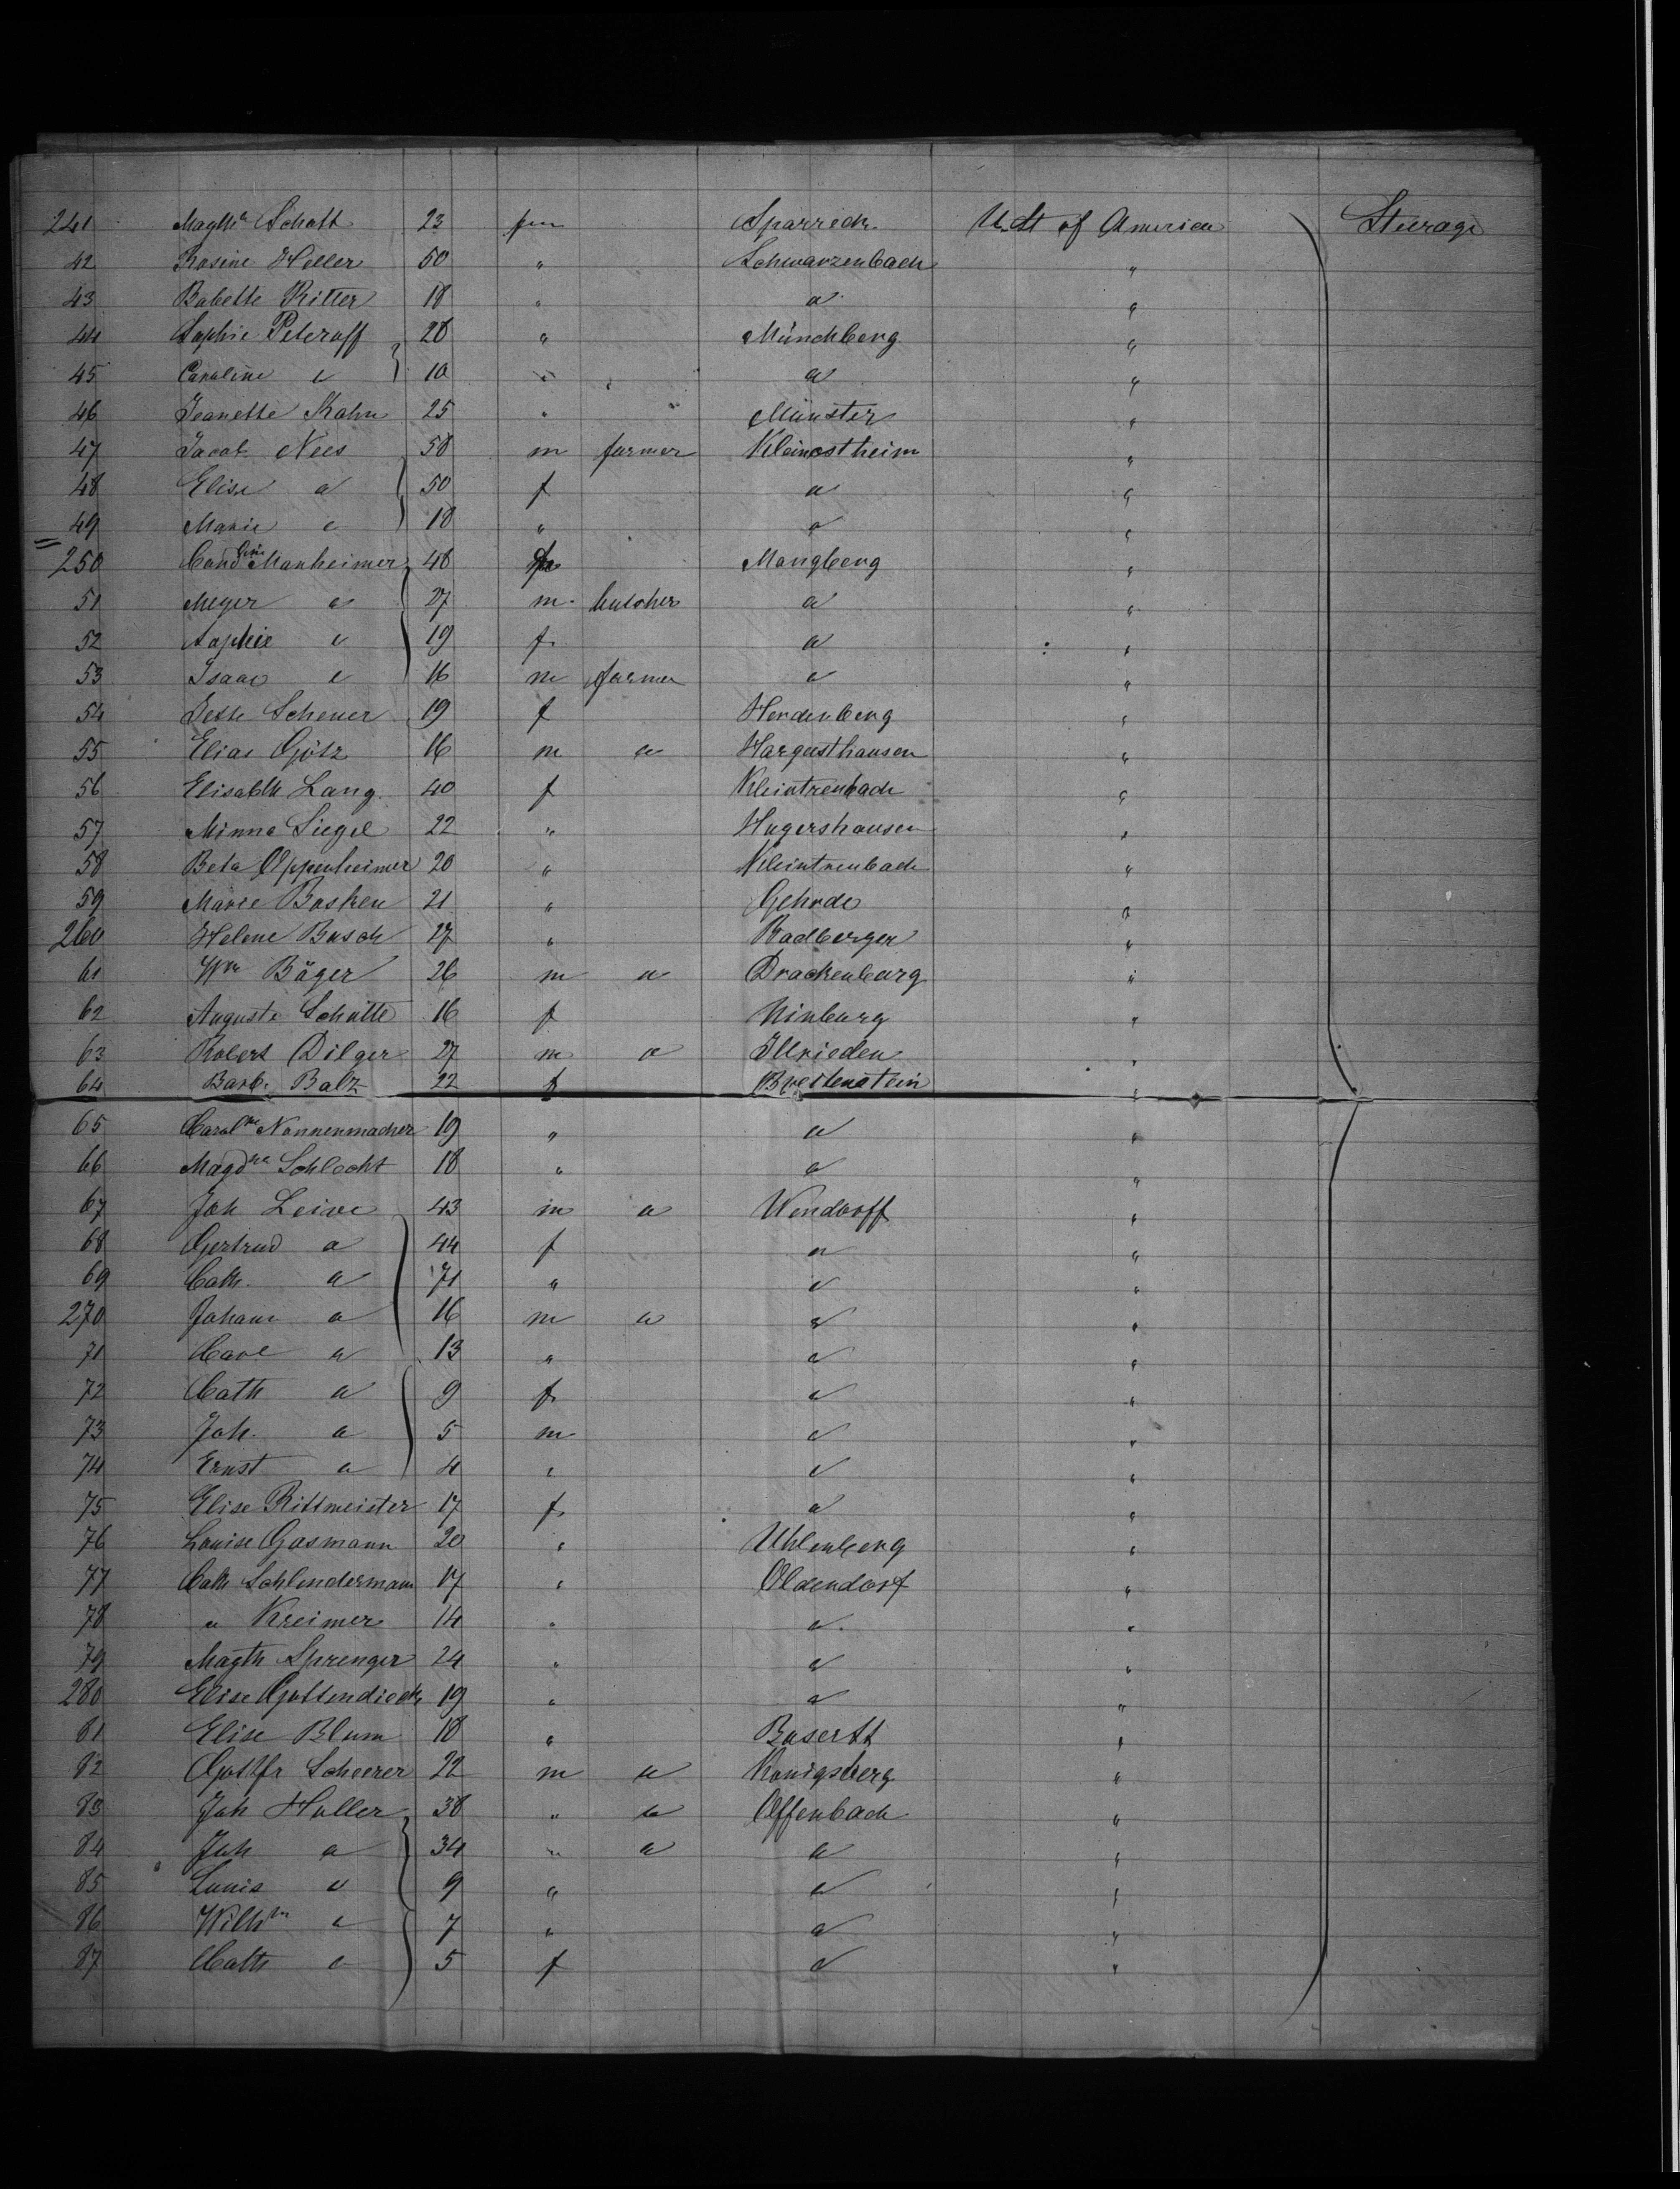 241 Magth Schott 23 fem Sparreck U. St of America Steerage
42 Rosine Heller 50 " Schwarzenbach "
43 Babette Ritter 18 " " "
44 Sophie Peteroff 28 " Münchberg "
45 Caroline " 10 " " "
46 Jeanette Kahn 25 " Münster "
47 Jacob Nees 58 m farmer Kleinostheim "
48 Elise " 50 f " "
49 Marie " 18 " " "
250 Manheimer 48 Mangberg "
51 Meyer " 27 m butcher " "
52 Sophie " 19 f " "
53 Isaac " 16 m farmer " "
54 Jette Scheuer 19 f Herdenberg "
55 Elias Götz 16 m " Hargesthausen "
56 Elisabth Lang 40 f Kleintrenbach "
57 Minna Siegel 22 " Hugershausen "
58 Beta Oppenheimer 20 " Kleintrenbach "
59 Marie Bosken 21 " Gehrde "
260 Helene Busch 27 " Radberger "
61 Wm Bäger 26 m " Drackenburg "
62 Auguste Schutte 16 f Ninburg "
63 Robert Dilger 27 m " Illrieden "
64 Barb. Balz 22 f Breitenstein "
65 Carolne Nonnenmacher 19 " " "
66 Magdna Schlecht 18 " " "
67 Joh Leive 43 m " Wendorff "
68 Gertrud " 44 f " "
69 Cath. " 71 " " "
270 Johann " 16 m " " "
71 Carl " 13 " " "
72 Cath " 9 f " "
73 Joh. " 5 m " "
74 Ernst " 4 " " "
75 Elise Rittmeister 17 f " "
76 Louise Gosmann 20 " Uhlenberg "
77 Cath Schlendermann 17 " Oldendorf "
78 " Kreimer 14 " " "
79 Magth Sprenger 24 " " "
280 Elise Gottendieck 19 " " "
81 Elise Blum 18 " "
82 Gottfr Scheerer 22 m " Konigsberg "
83 Joh Haller 38 " " Offenbach "
84 Joh " 34 " " " "
85 Louis " 9 " " "
86 Wilhm " 7 " " "
87 Cath " 5 f " "